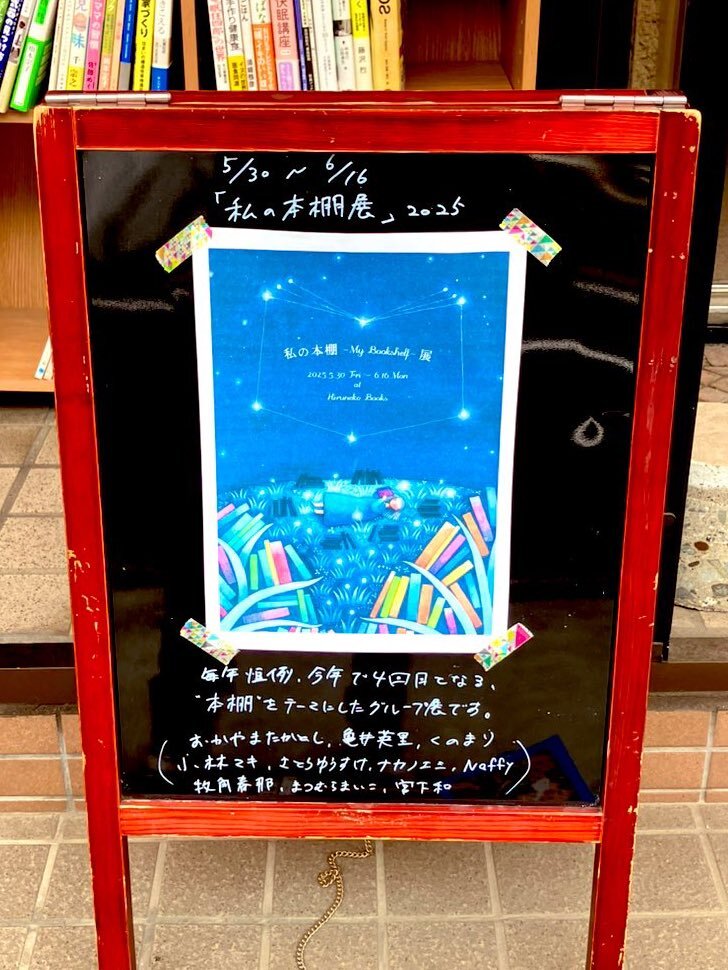 家づくり
手作り健康食
快眠講座
藤沢烈
5/30 〜 6/16
「私の本棚展」2025
私の本棚 -My Bookshelf- 展
2025.5.30 Fri - 6.16 Mon
at
Haruneko Books
毎年恒例、今年で4回目となる、
"本棚"をテーマにしたグループ展です。
おかやまたかとし、亀井英里、くのまり
小林マキ、さとうゆうすけ、ナカノエニ、Naffy
牧角春那、まつむらまいこ、宮下和